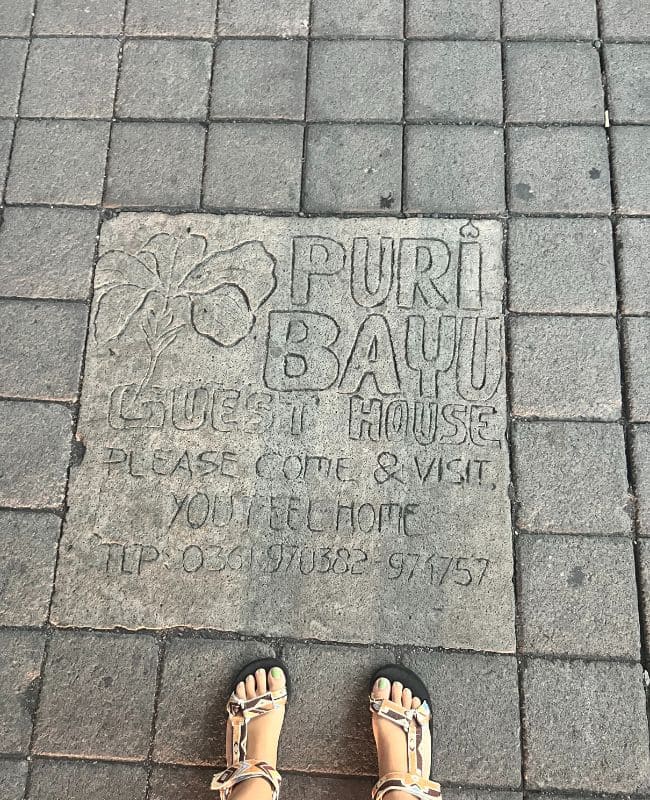 PURI
BAYU
GUEST HOUSE
PLEASE COME & VISIT,
YOU FEEL HOME
TLP: 0361 970382 - 971757